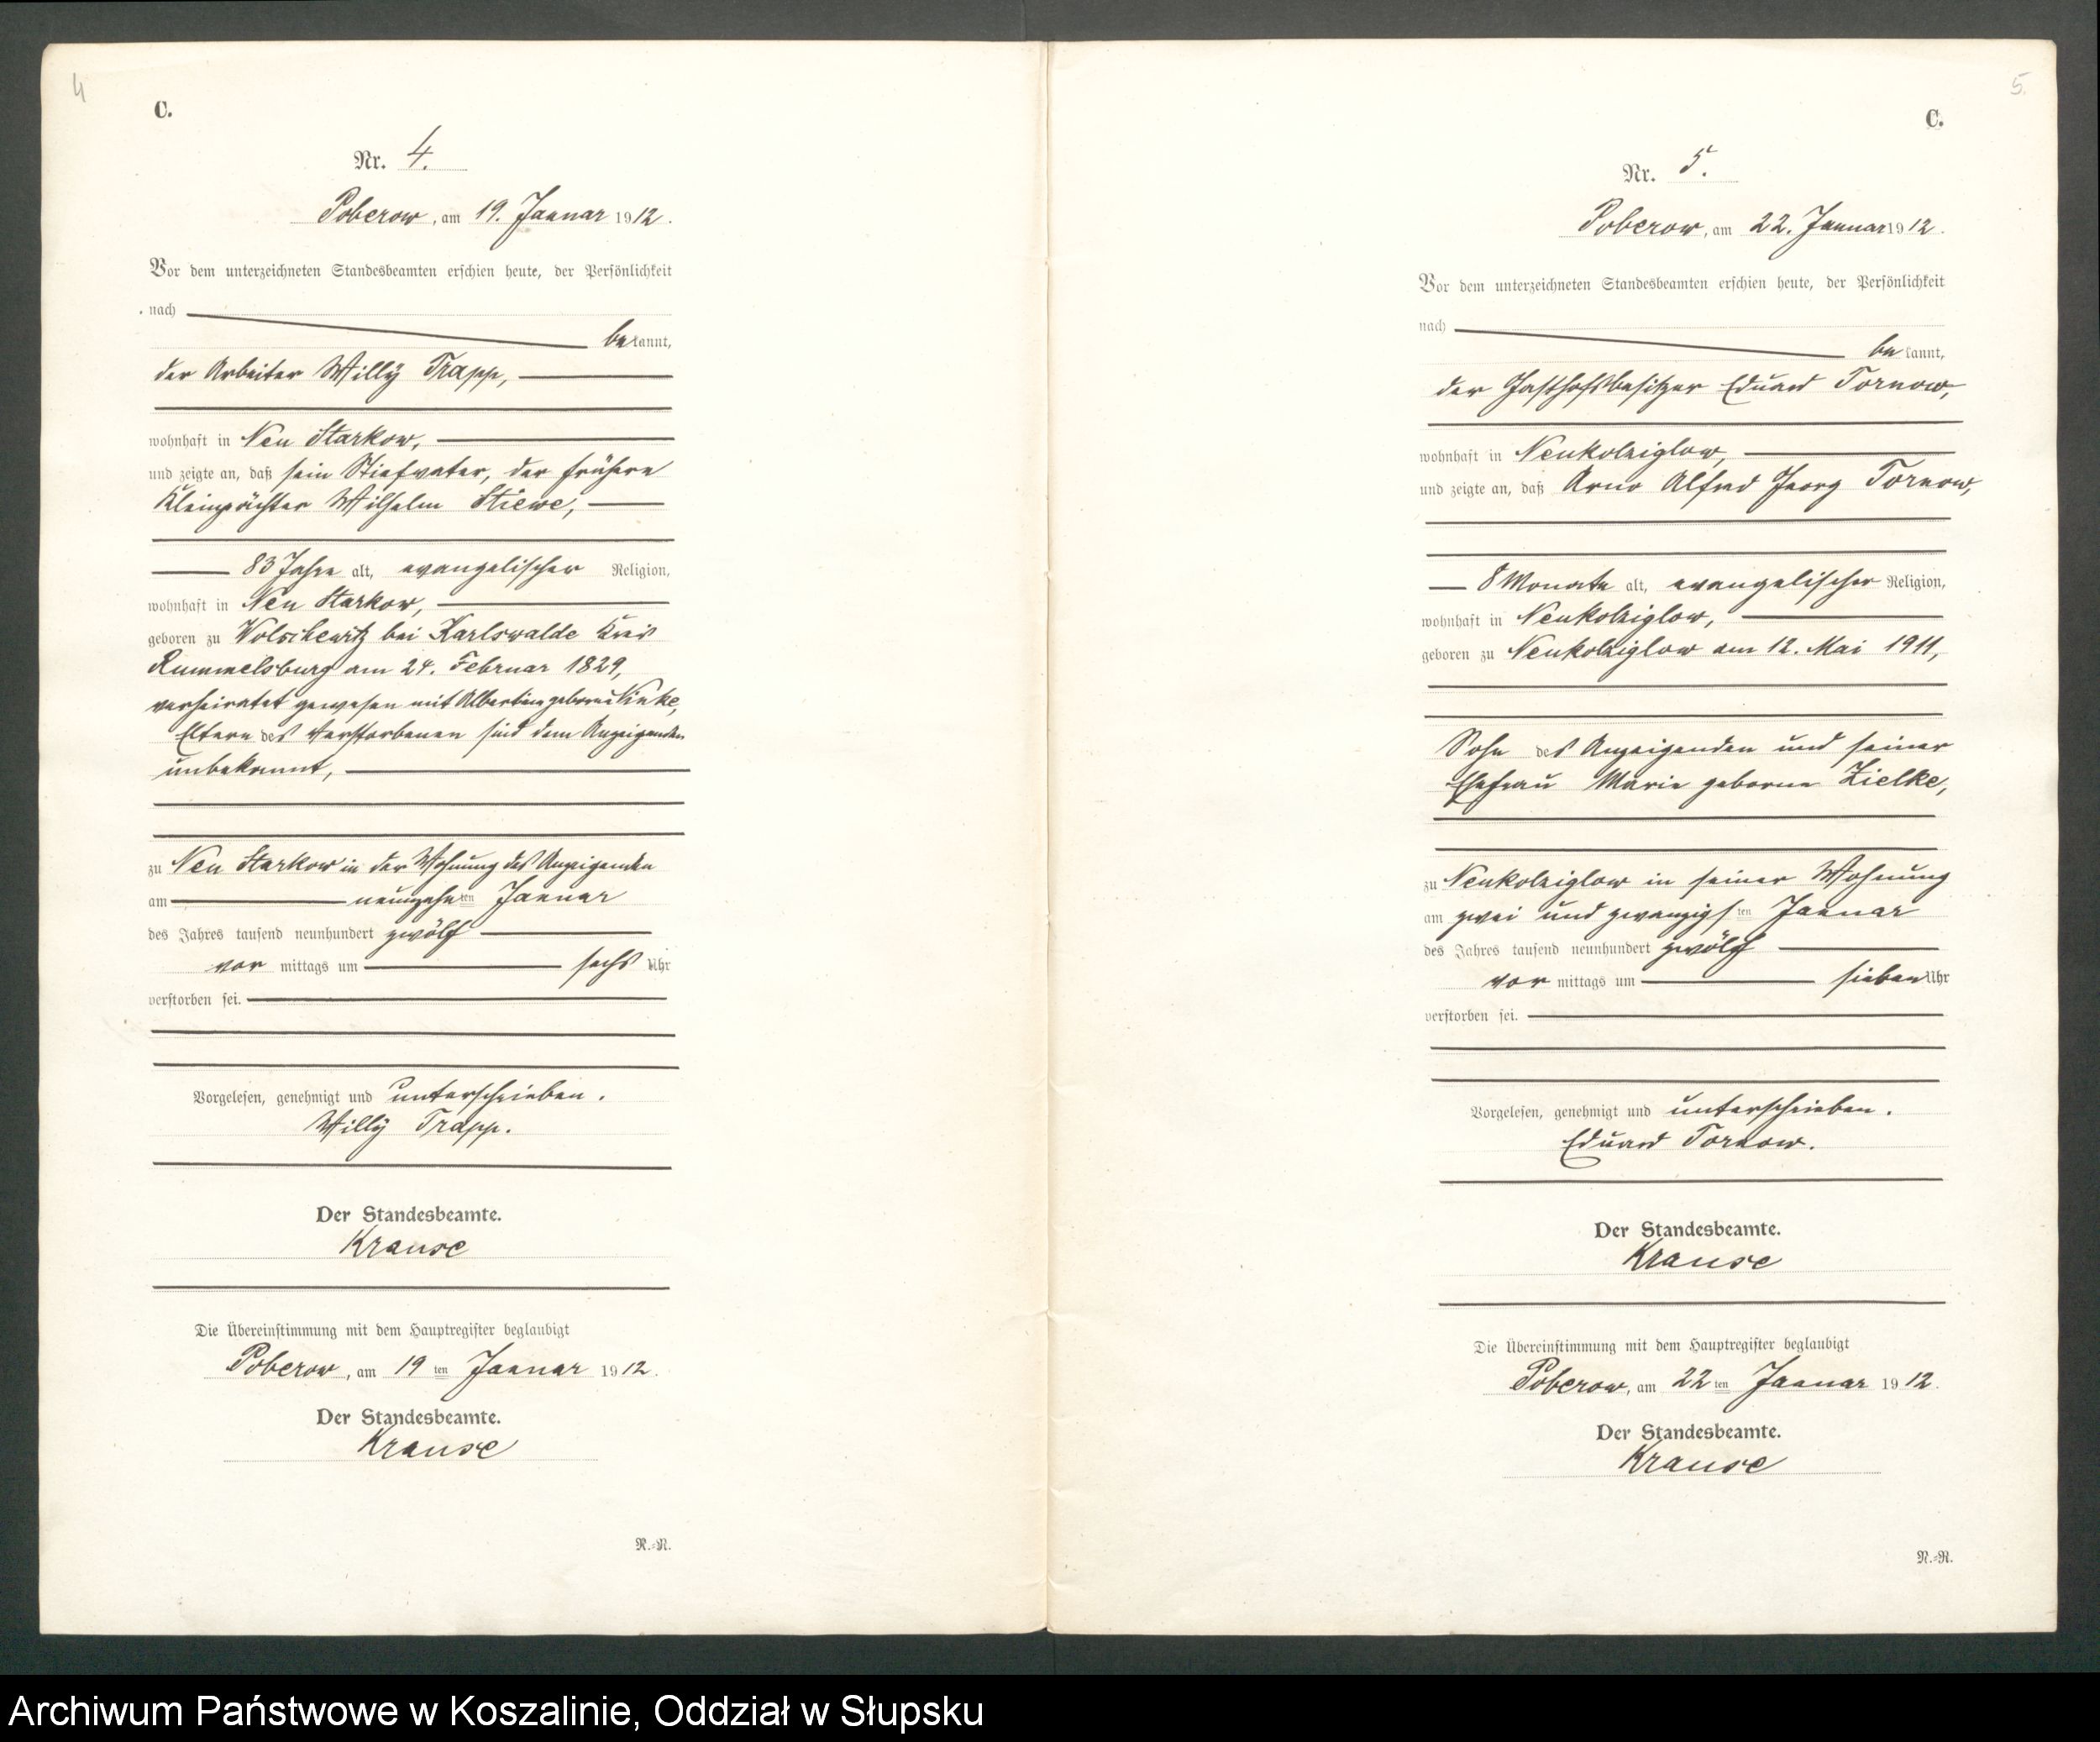 4
C.
Nr. 4.
Poberow, am 19. Januar 1912.
Vor dem unterzeichneten Standesbeamten erschien heute, der Persönlichkeit
nach
bekannt,
der Arbeiter Willy Trapp,
wohnhaft in Neu Starkow,
und zeigte an, daß sein Stiefvater, der frühere
Kleinpächter Wilhelm Stiewe,
83 Jahre alt, evangelischer Religion,
wohnhaft in Neu Starkow,
geboren zu Wolschewitz bei Karlswalde Kreis
Rummelsburg am 24. Februar 1829,
verheiratet gewesen mit Albertine geborne
Eltern des Verstorbenen sind dem Anzeigenden
unbekannt,
zu Neu Starkow in der Wohnung des Anzeigenden
am neunzehnten Januar
des Jahres tausend neunhundert zwölf
vor mittags um sechs Uhr
verstorben sei.
Vorgelesen, genehmigt und unterschrieben.
Willy Trapp.
Der Standesbeamte.
Krause
Die Übereinstimmung mit dem Hauptregister beglaubigt
Poberow, am 19ten Januar 1912.
Der Standesbeamte.
Krause
N.=R.
5.
C.
Nr. 5.
Poberow, am 22. Januar 1912.
Vor dem unterzeichneten Standesbeamten erschien heute, der Persönlichkeit
nach
bekannt,
der Gasthofsbesitzer Eduard Tornow,
wohnhaft in Neukolziglow,
und zeigte an, daß Arno Alfred Georg Tornow,
8 Monate alt, evangelischer Religion,
wohnhaft in Neukolziglow,
geboren zu Neukolziglow am 12. Mai 1911,
Sohn des Anzeigenden und seiner
Ehefrau Marie geborne Zielke,
zu Neukolziglow in seiner Wohnung
am zwei und zwanzigsten Januar
des Jahres tausend neunhundert zwölf
vor mittags um sieben Uhr
verstorben sei.
Vorgelesen, genehmigt und unterschrieben.
Eduard Tornow.
Der Standesbeamte.
Krause
Die Übereinstimmung mit dem Hauptregister beglaubigt
Poberow, am 22ten Januar 1912.
Der Standesbeamte.
Krause
N.=R.
Archiwum Państwowe w Koszalinie, Oddział w Słupsku